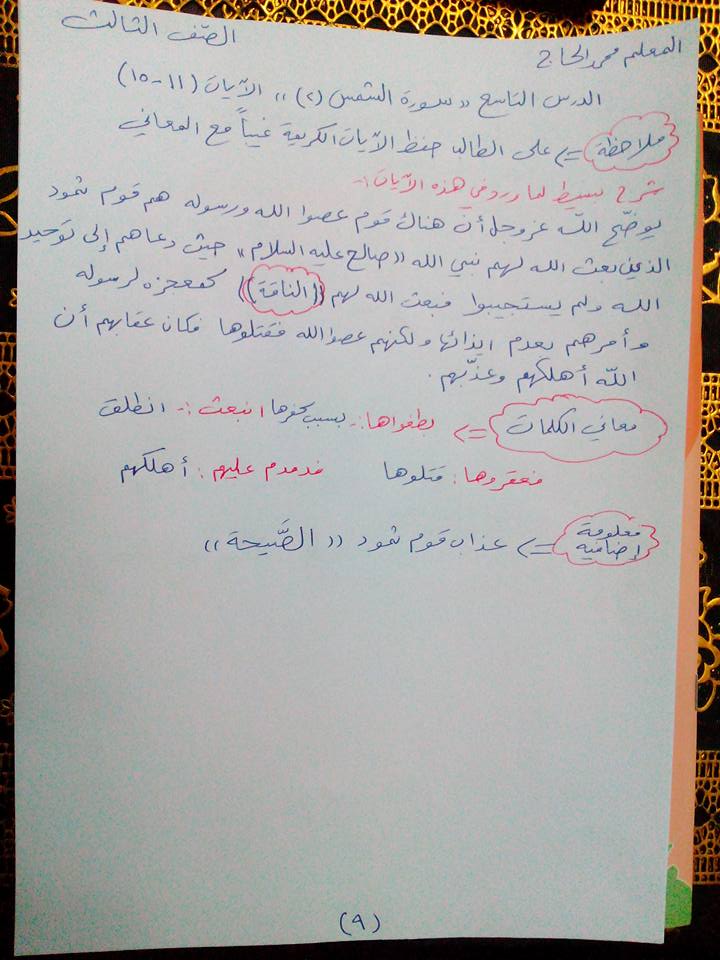 المعلم محمد الحاج
الصّف الثالث
الدرس التاسع "سورة الشمس (٢)" الآيات (١١-١٥)
ملاحظة => على الطالب حفظ الآيات الكريمة غيباً مع المعاني
شرح بسيط لما ورد في هذه الآيات :-
يوضّح الله عز وجل أن هناك قوم عصوا الله ورسوله هم قوم ثمود
الذين بعث الله لهم نبي الله "صالح عليه السلام" حيث دعاهم إلى توحيد
الله ولم يستجيبوا فبعث الله لهم ((الناقة)) كمعجزه لرسوله
وأمرهم بعدم ايذائها ولكنهم عصوا الله فقتلوها فكان عقابهم أن
الله أهلكهم وعذّبهم .
معاني الكلمات => بطغواها :- بسبب كفرها انبعث :- انطلق
فعقروها : قتلوها فدمدم عليهم : أهلكهم
معلومة إضافيه => عذاب قوم ثمود "الصَّيحة"
(٩)